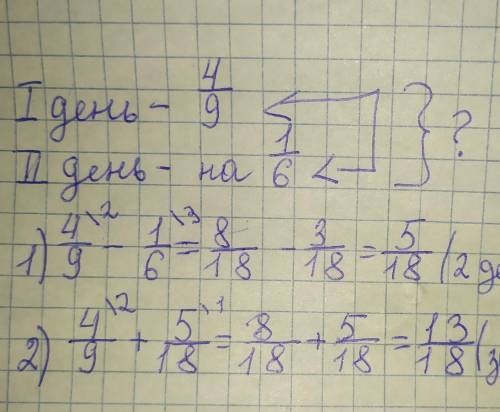 I день - 4/9
II день - на 1/6 < } ?
1) 4/9\2 - 1/6\3 = 8/18 - 3/18 = 5/18 (2 де
2) 4/9\2 + 5/18\1 = 8/18 + 5/18 = 13/18 (з